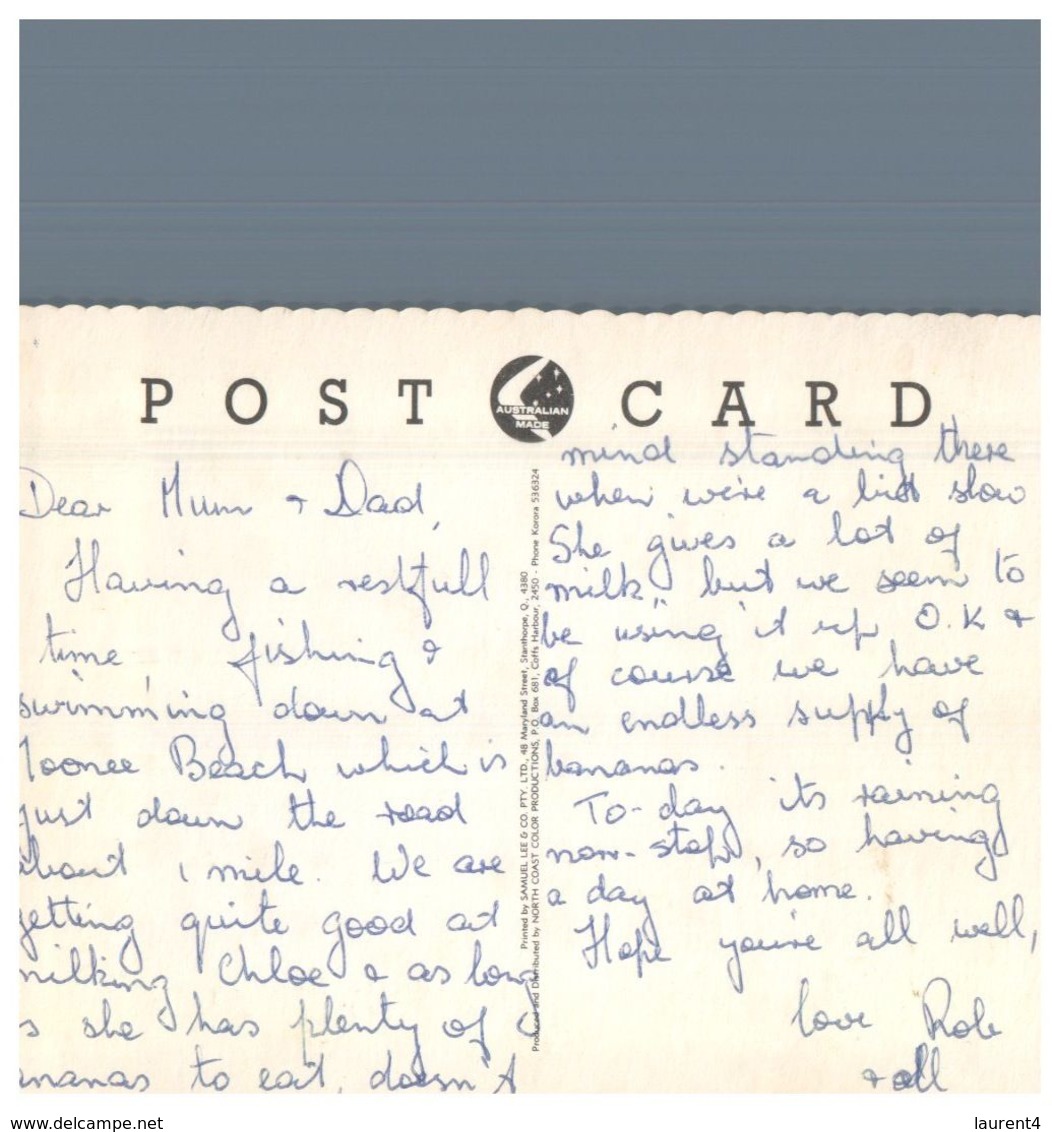 POST CARD
AUSTRALIAN
MADE
Dear Mum + Dad,
Having a restfull
time fishing &
swimming down at
Moonee Beach which is
just down the road
about 1 mile. We are
getting quite good at
milking Chloe & as long
as she has plenty of
ananas to eat, doesn't
Printed by SAMUEL LEE & CO. PTY. LTD., 48 Maryland Street, Stanthorpe, Q., 4380
Produced and Distributed by NORTH COAST COLOR PRODUCTIONS, P.O. Box 681, Coffs Harbour, 2450 - Phone Korora 536324
mind standing there
when we're a bit slow
She gives a lot of
milk, but we seem to
be using it up O.K &
of course we have
an endless supply of
bananas.
To-day its raining
non-stop, so having
a day at home.
Hope you're all well,
love Rob
+ all
www.delcampe.net
laurent4